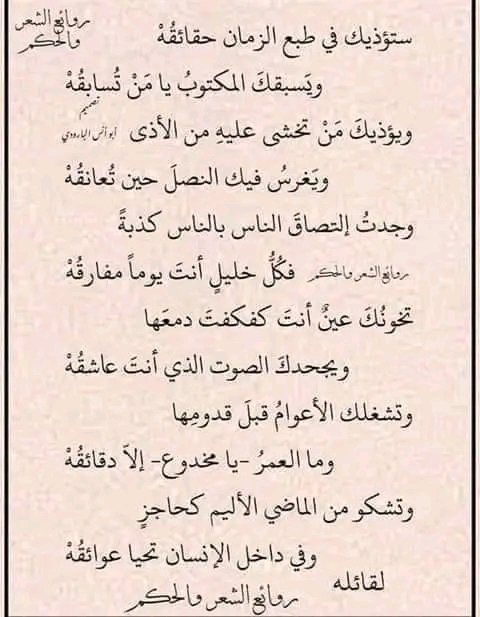 روائع الشعر
والحكم
ستؤذيك في طبع الزمان حقائقُهْ
ويَسبقكَ المكتوبُ يا مَنْ تُسابقُهْ
تصميم
ويؤذيكَ مَنْ تخشى عليهِ من الأذى أبو أنس البارودي
ويَغرسُ فيك النصلَ حين تُعانقُهْ
وجدتُ إلتصاقَ الناس بالناس كذبةً
فكُلُّ خليلٍ أنتَ يوماً مفارقُهْ روائع الشعر والحكم
تخونُكَ عينٌ أنتَ كفكفتَ دمعَها
ويجحدكَ الصوت الذي أنتَ عاشقُهْ
وتشغلك الأعوامُ قبلَ قدومِها
وما العمرُ -يا مخدوع- إلاّ دقائقُهْ
وتشكو من الماضي الأليم كحاجزٍ
وفي داخل الإنسان تحيا عوائقُهْ
لقائله
روائع الشعر والحكم